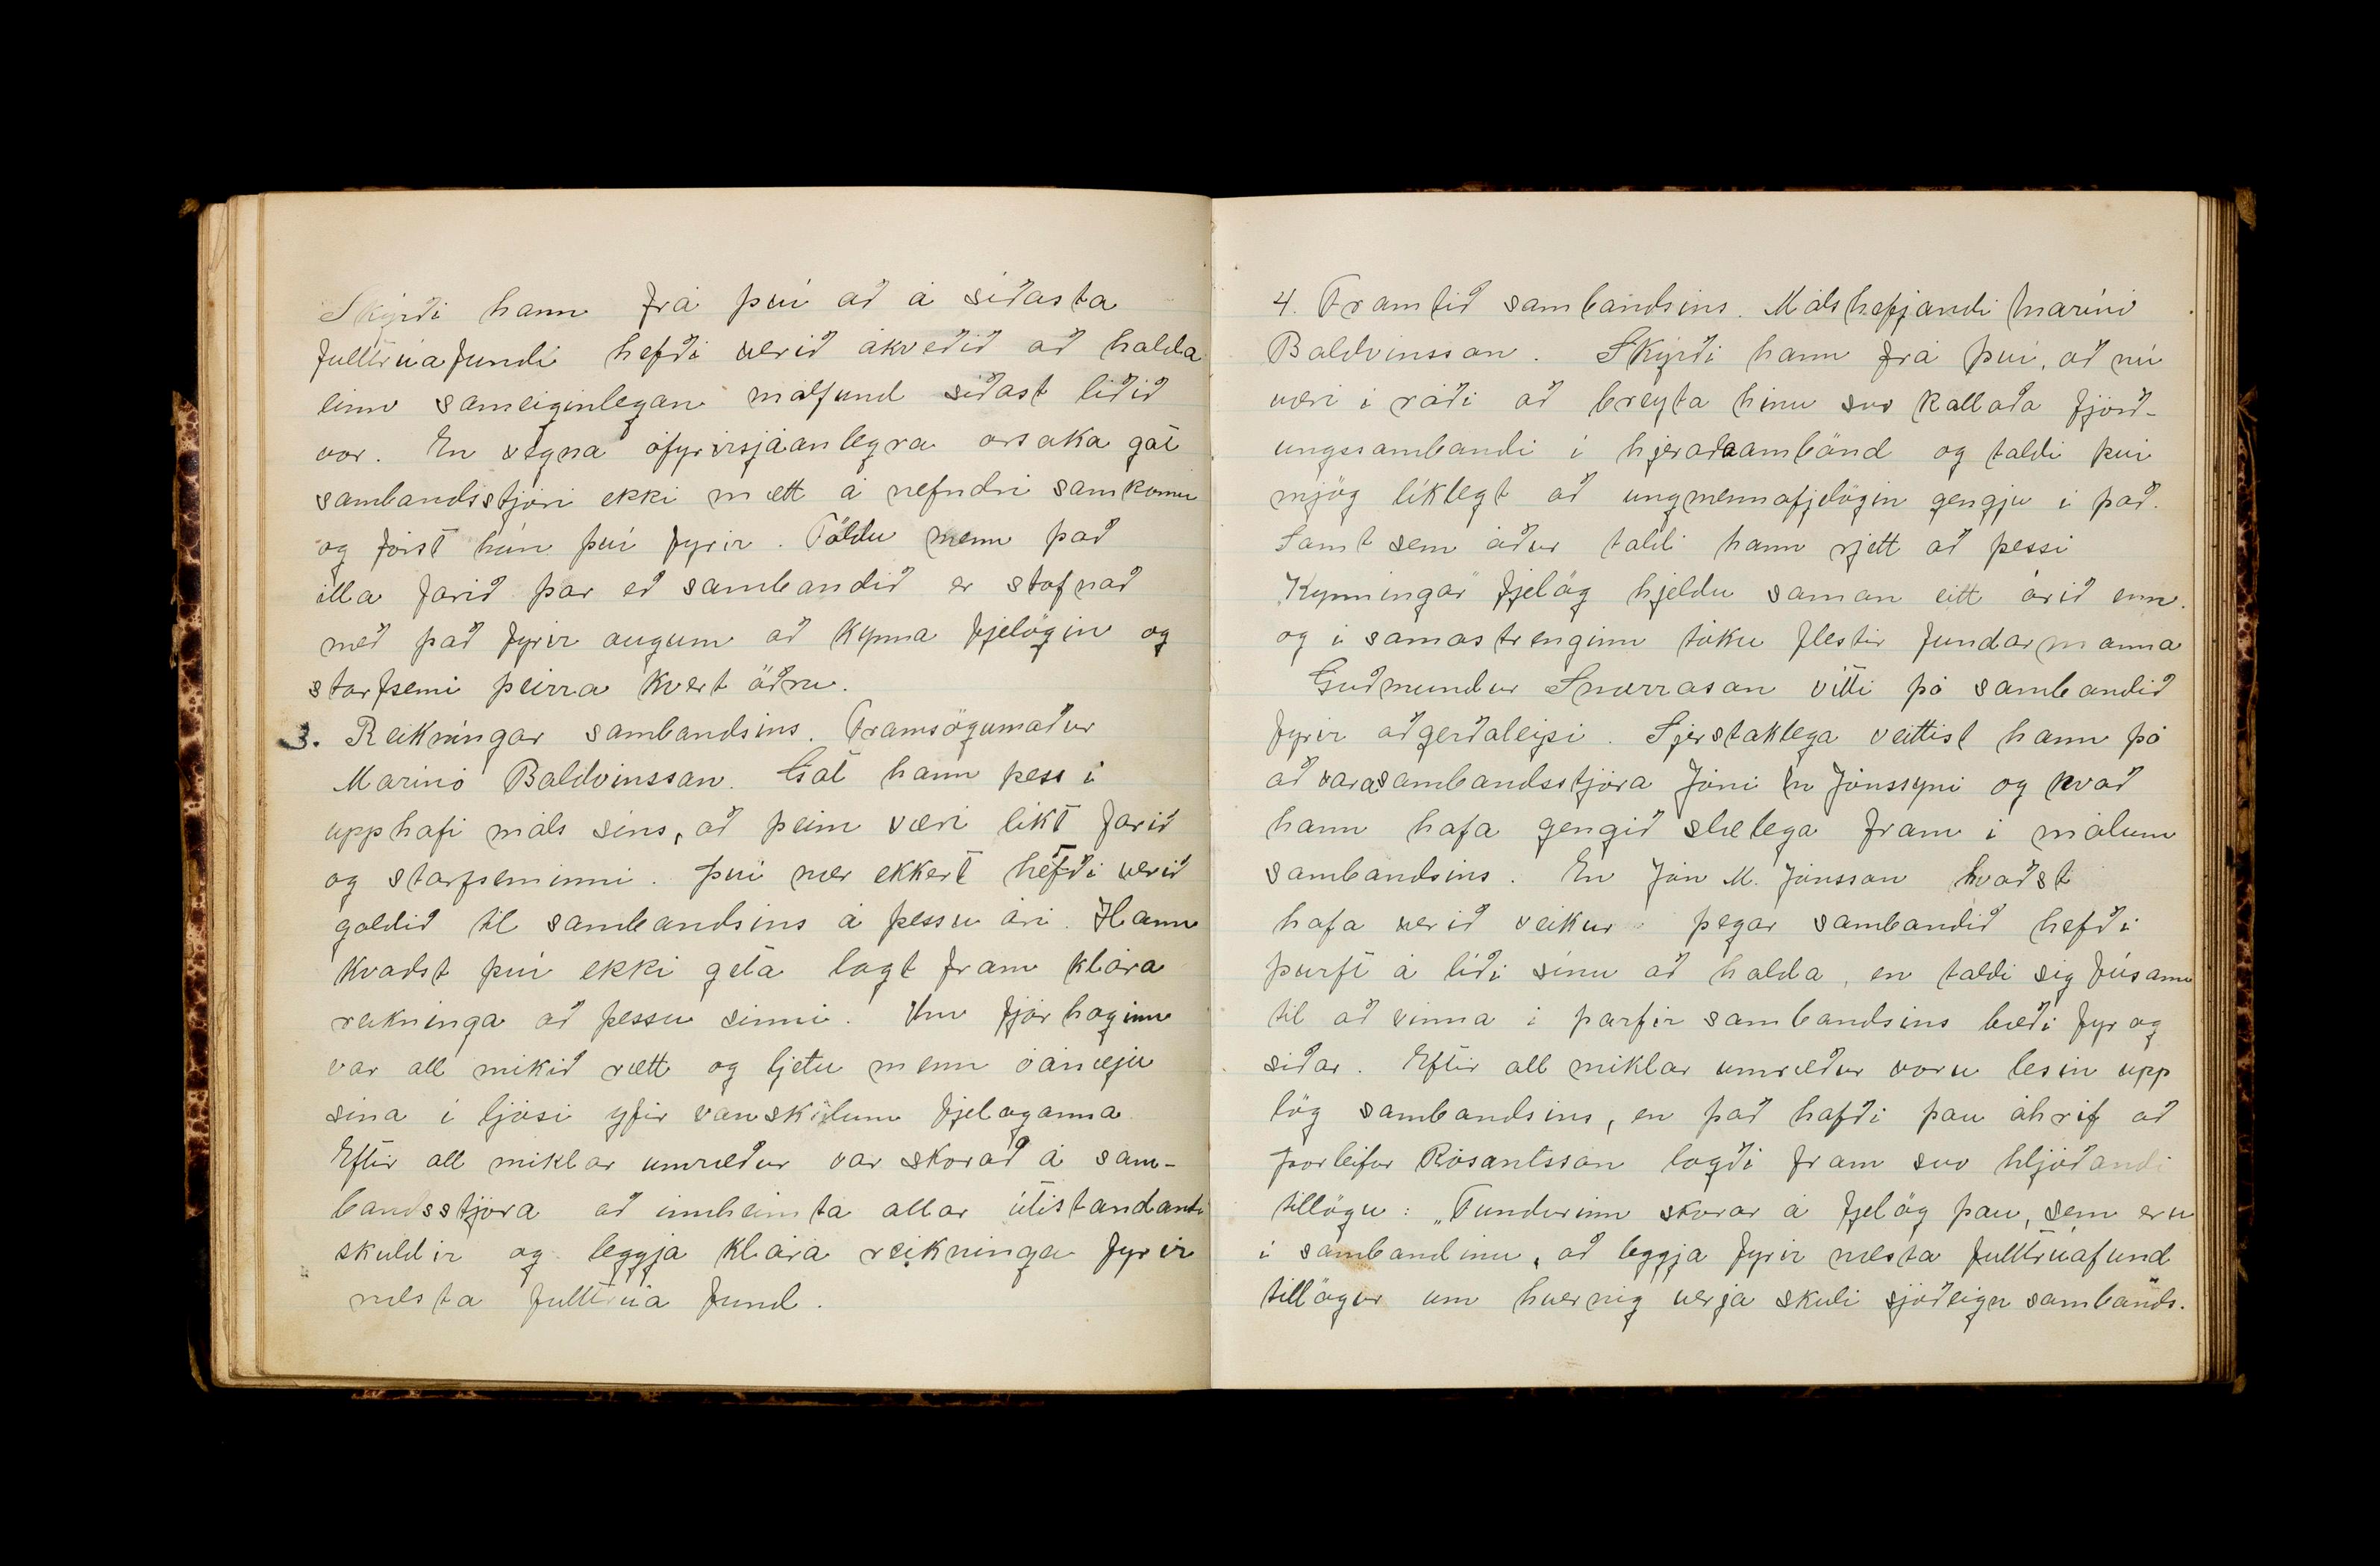 Skýrði hann frá því að á síðasta
fulltrúafundi hefði verið ákveðið að halda
einn sameiginlegan málfund síðast liðið
vor. En vegna ófyrirsjáanlegra orsaka gat
sambandsstjóri ekki mætt á nefndri samkomu
og fórst hún því fyrir. Töldu menn það
illa farið þar eð sambandið er stofnað
með það fyrir augum að kynna fjelögin og
starfsemi þeirra hvert öðru.
3. Reikningar sambandsins. Framsögumaður
Marinó Baldvinsson. Gat hann þess í
upphafi máls síns, að þeim væri líkt farið
og starfseminni. Því nær ekkert hefði verið
goldið til sambandsins á þessu ári. Hann
kvaðst því ekki geta lagt fram klára
reikninga að þessu sinni. Um fjárhaginn
var all mikið rætt og ljetu menn óánægju
sína í ljósi yfir vanskilum fjelaganna.
Eftir all miklar umræður var skorað á sam-
bandsstjóra að innheimta allar útistandandi
skuldir og leggja klára reikninga fyrir
næsta fulltrúa fund.
4. Framtíð sambandsins. Málshefjandi Marinó
Baldvinsson. Skýrði hann frá því, að nú
væri í ráði að breyta hinu svo kallaða fjórð-
ungssambandi í hjeraðasambönd og taldi því
mjög líklegt að ungmennafjelögin gengju í það.
Samt sem áður taldi hann rjett að þessi
"Kynningar" fjelög hjeldu saman eitt árið enn.
og í sama strenginn tóku flestir fundarmanna
Guðmundur Snorrason vitti þó sambandið
fyrir aðgerðaleysi. Sjerstaklega veittist hann þó
að varasambandsstjóra Jóni M Jónssyni og kvað
hann hafa gengið slælega fram í málum
sambandsins. En Jón M. Jónsson kvaðst
hafa verið veikur þegar sambandið hefði
þurft á liði sínu að halda, en taldi sig fúsann
til að vinna í þarfir sambandsins bæði fyr og
síðar. Eftir all miklar umræður voru lesin upp
lög sambandsins, en það hafði þau áhrif að
Þorleifur Rósantsson lagði fram svo hljóðandi
tillögu: „Fundurinn skorar á fjelög þau, sem eru
í sambandinu, að leggja fyrir næsta fulltrúafund
tillögur um hvernig verja skuli sjóðeign sambands-